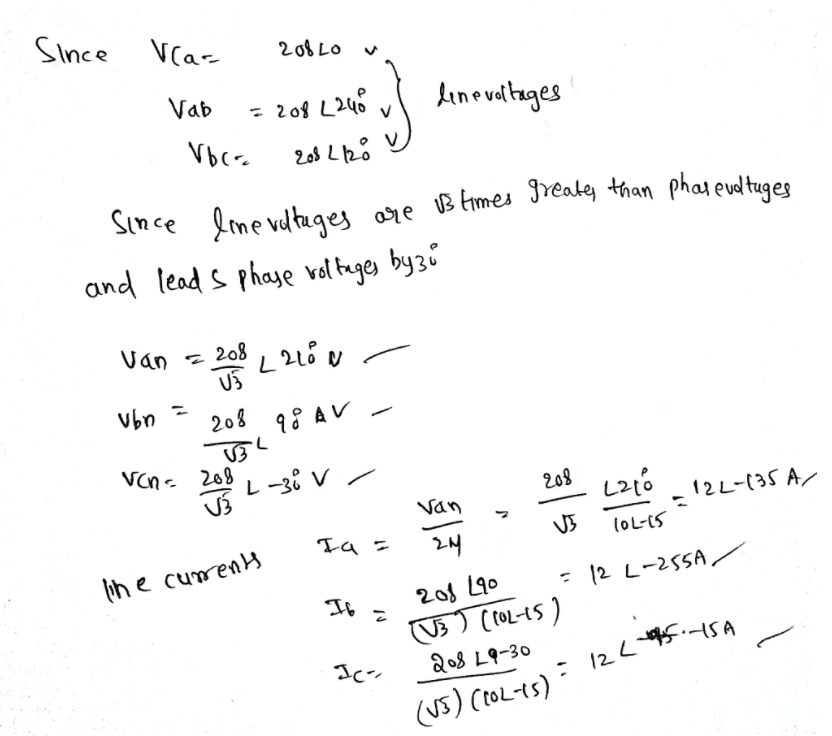 Since Vca= 208∠0 v
Vab = 208 ∠240° v } line voltages
Vbc= 208 ∠120° V
Since line voltages are √3 times greater than phase voltages
and leads phase voltages by 30°
Van = 208/√3 ∠ 210° V
Vbn = 208/√3 ∠ 90° V
Vcn= 208/√3 ∠ -30° V
line currents Ia = Van/ = 208/√3 ∠210°/10∠-15 = 12∠-135 A
Ib = 208 ∠90/(√3)(10∠-15) = 12 ∠-255A
Ic= 208 ∠9-30/(√3)(10∠-15) = 12∠ -15A